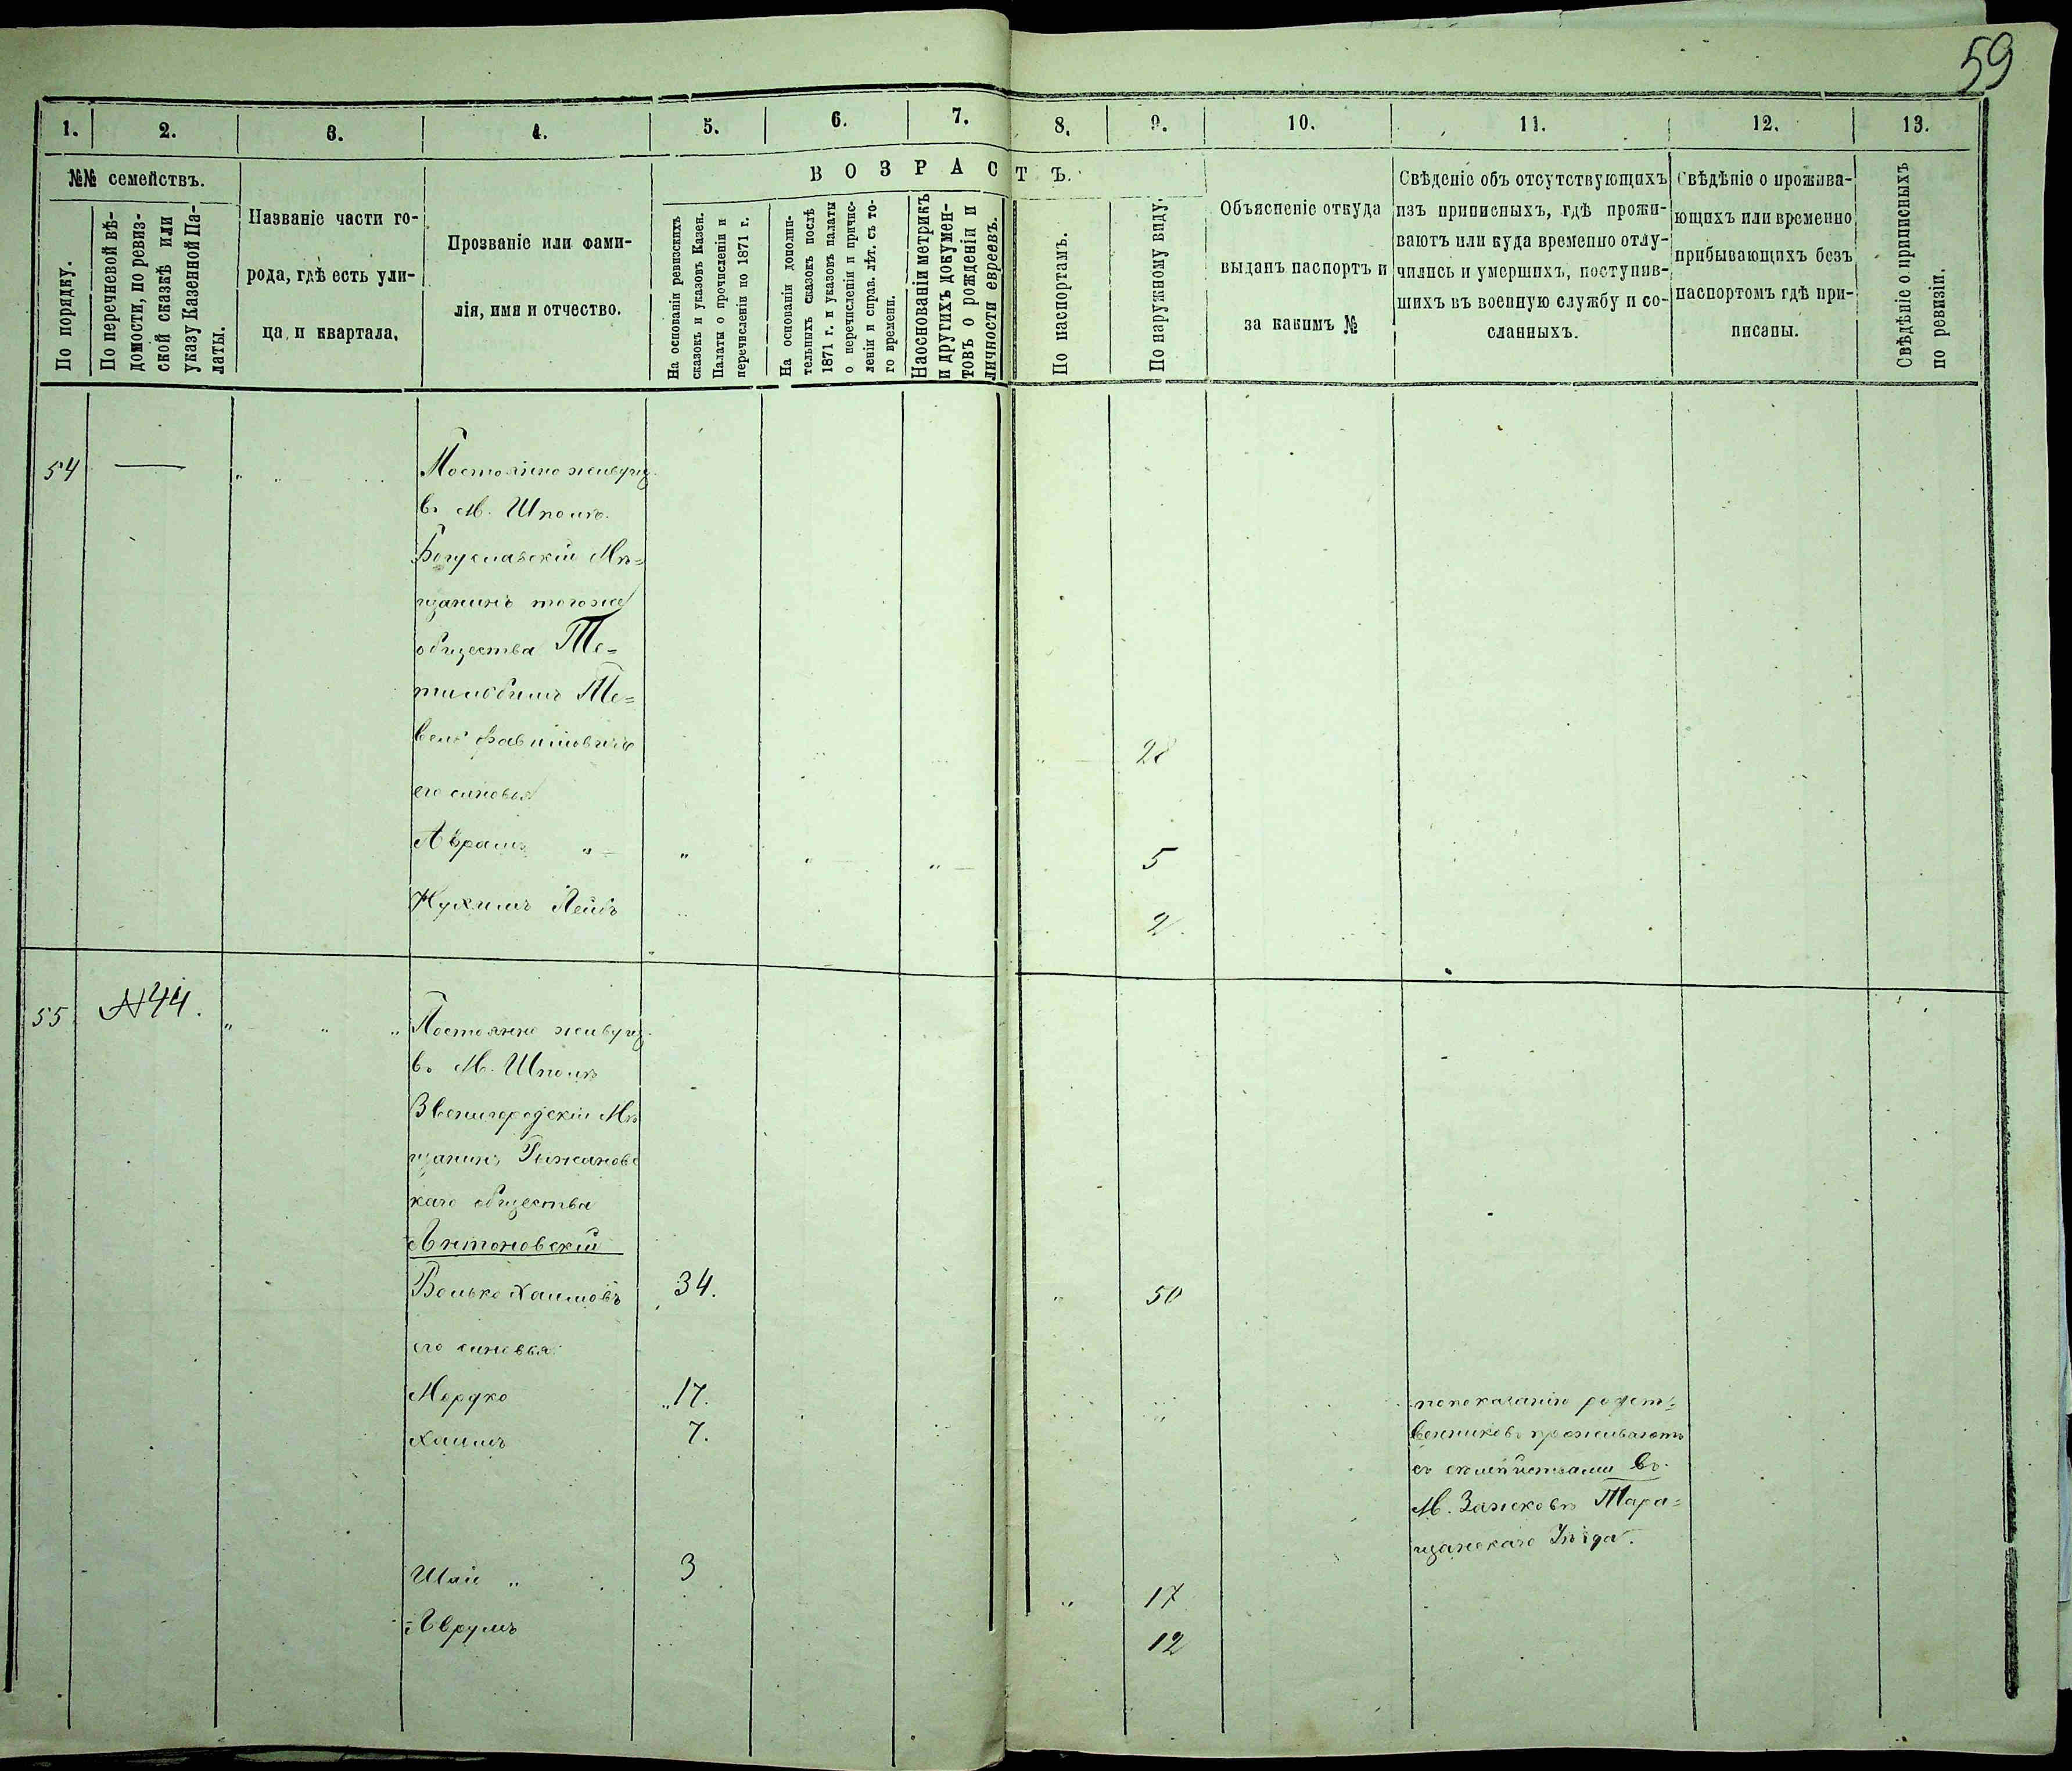 59
1. 2. 3. 4. 5. 6. 7. 8. 9. 10. 11. 12. 13.
№№ семействъ.
По порядку.
По перечневой вѣ-
домости, по ревиз-
ской сказкѣ или
указу Казенной Па-
латы.
Названіе части го-
рода, гдѣ есть ули-
ца и квартала.
Прозваніе или фами-
лія, имя и отчество.
ВОЗРАСТЪ.
На основаніи ревизскихъ
сказокъ и указовъ Казен.
Палаты о прочисленіи и
перечисленіи по 1871 г.
На основаніи дополни-
тельныхъ сказокъ послѣ
1871 г. и указовъ палаты
о перечисленіи и причис-
леніи и справ. лѣт. съ то-
го времени.
На основаніи метрикъ
и другихъ докумен-
товъ о рожденіи и
личности евреевъ.
По паспортамъ.
По наружному виду.
Объясненіе откуда
выданъ паспортъ и
за какимъ №
Свѣденіе объ отсутствующихъ
изъ приписныхъ, гдѣ прожи-
ваютъ или куда временно отлу-
чились и умершихъ, поступив-
шихъ въ военную службу и со-
сланныхъ.
Свѣдѣніе о прожива-
ющихъ или временно
прибывающихъ безъ
паспортомъ гдѣ при-
писаны.
Свѣдѣніе о приписныхъ
по ревизіи.
54 — Постоянно живущ.
въ М. Шполѣ
Богуславскій Мѣ-
щанинъ тогоже
общества Те-
Те-
вель 28
его сыновья
Абрамъ " 5
Нухимъ Лейбъ 2
55 №44. Постоянно живущ.
въ М. Шполѣ
Звенигородскій Мѣ
щанинъ Рыжановс
каго общества
Антоновскій
Волько Хаимовъ 34. 50
его сыновья
Мордко 17. по показанію родст-
Хаимъ 7. венниковъ проживаютъ
съ семѣйствами въ
М. Зажковѣ Тара-
щанскаго Уѣзда.
Шай " 3 17
Аврумъ 12